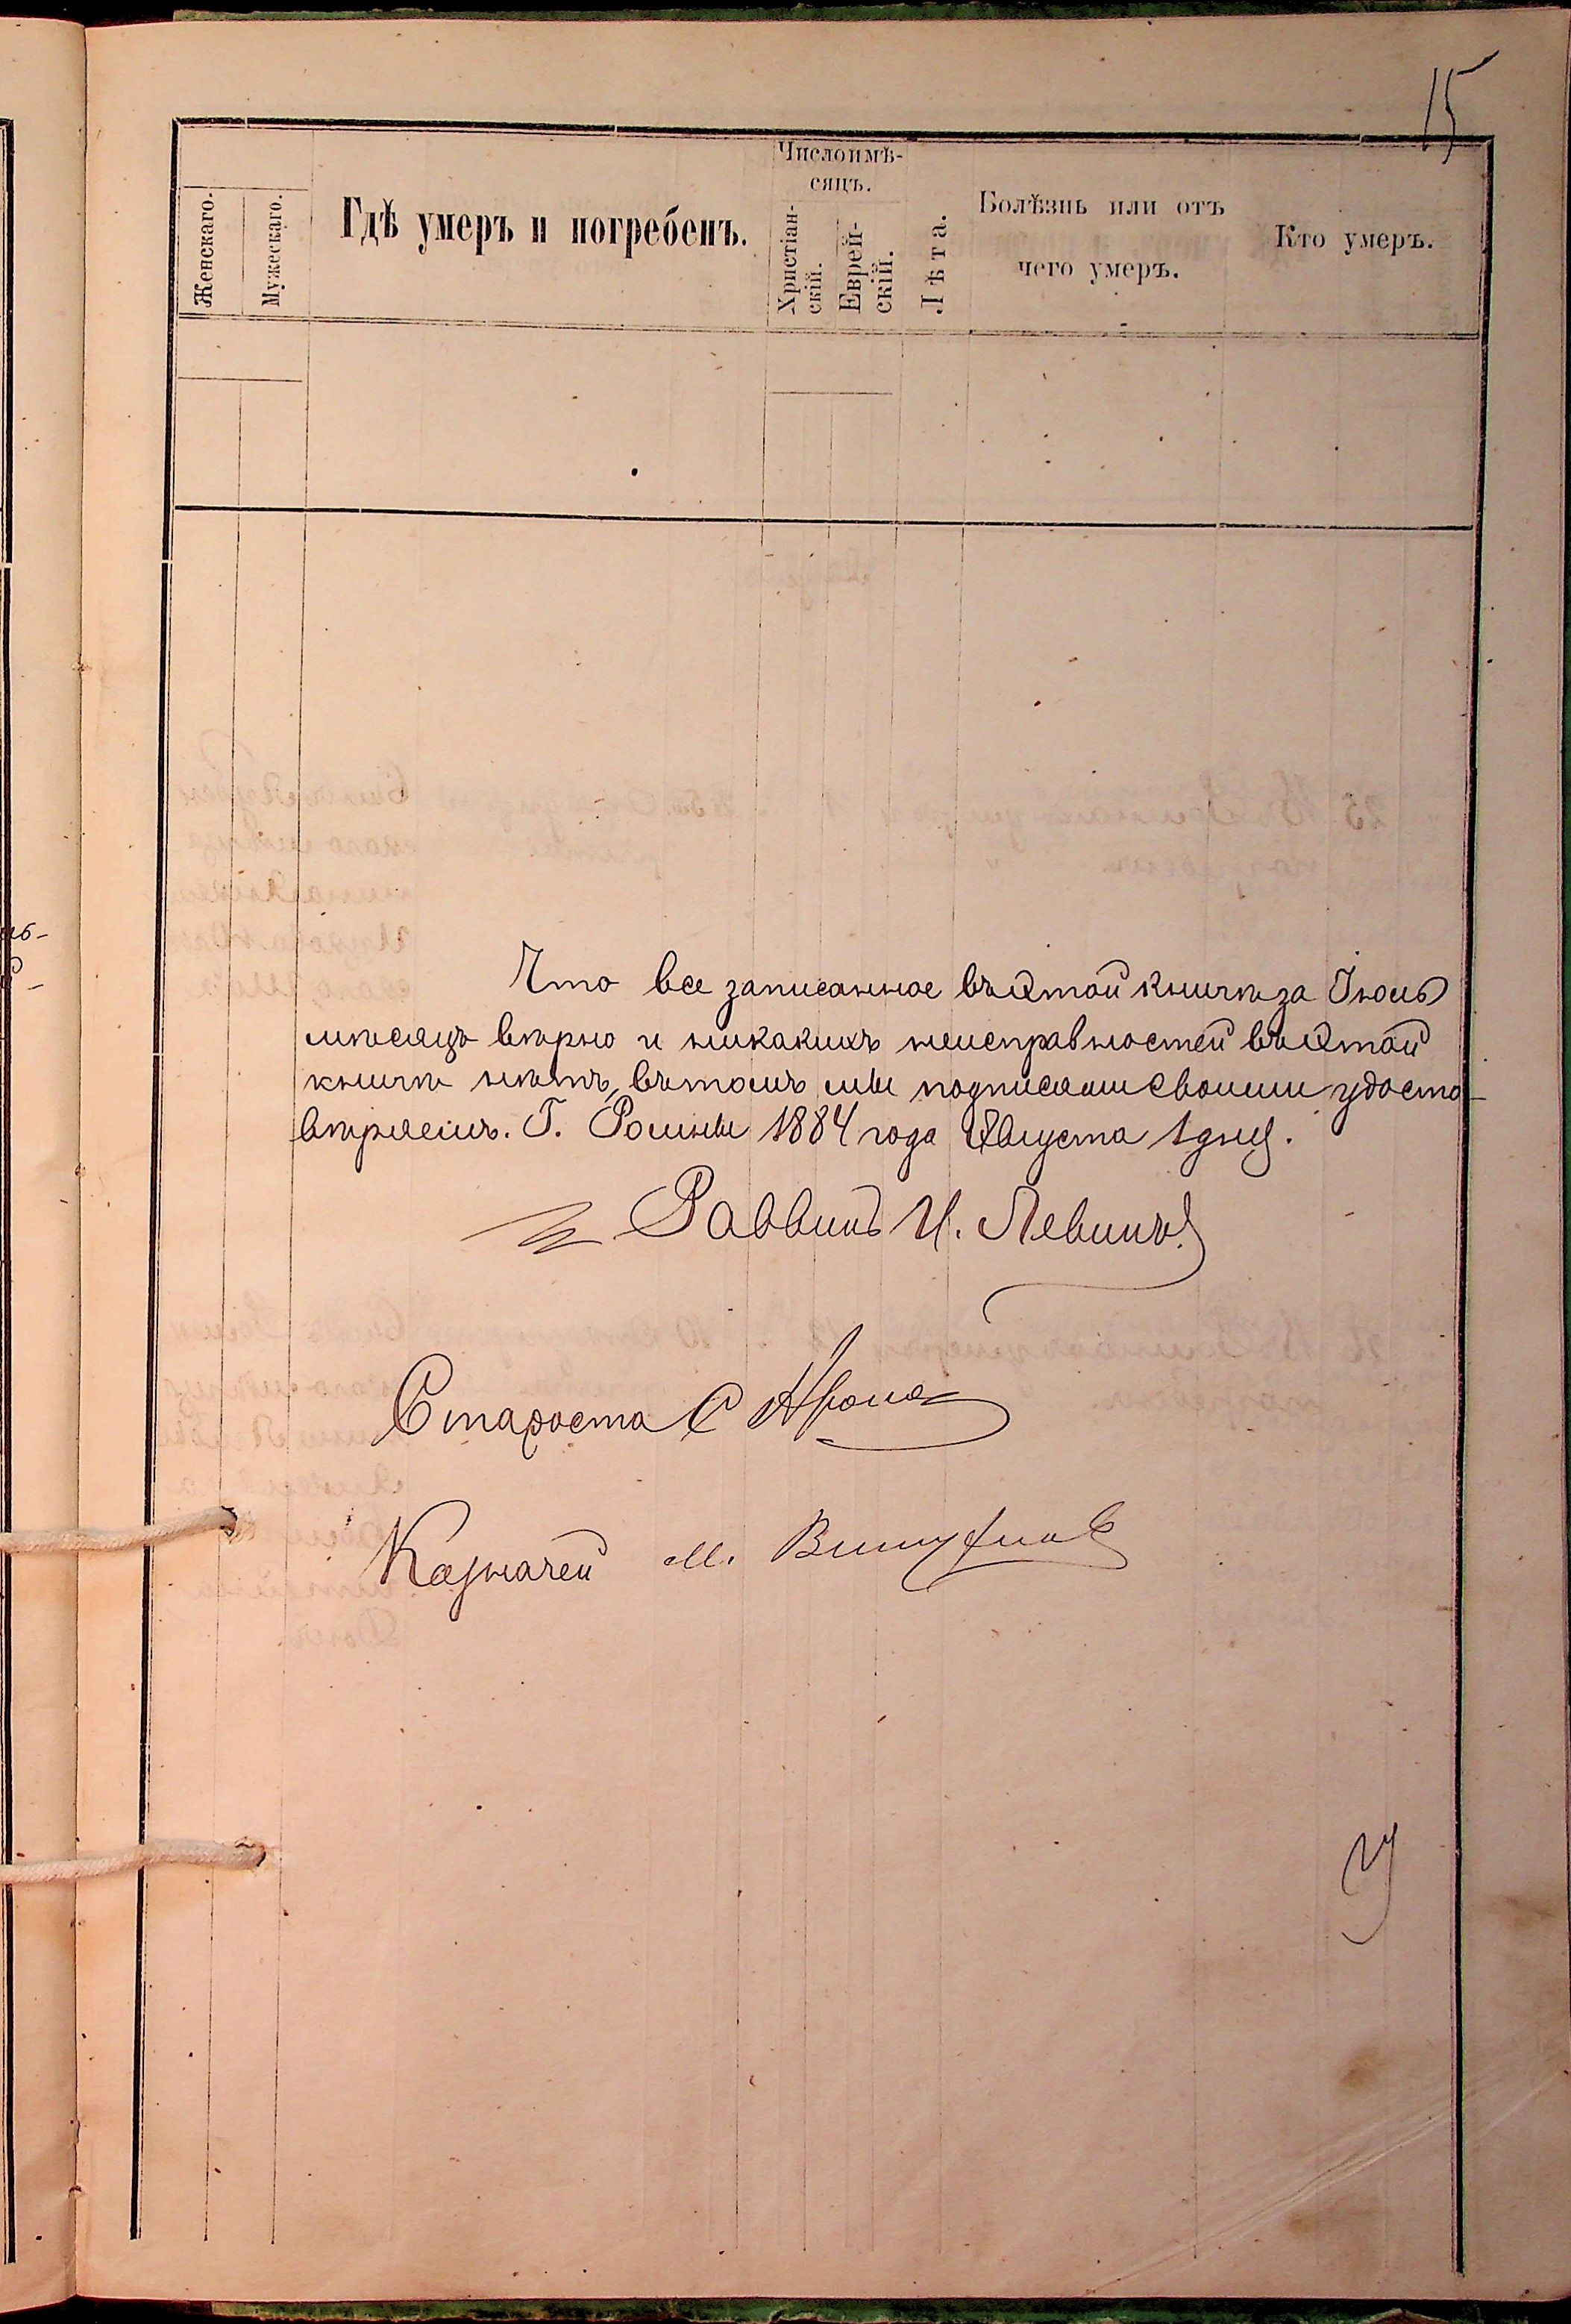 15
Числоимѣ-
сяцъ.
Женскаго.
Мужескаго.
Гдѣ умеръ и погребенъ.
Христіан-
скій.
Еврей-
скій.
Лѣта.
Болѣзнь или отъ
чего умеръ.
Кто умеръ.
Что все записанное въ этой книгѣ за Іюль
мѣсяцъ вѣрно и никакихъ неисправностей въ этой
книгѣ нѣтъ, въ томъ мы подписами своими удосто-
вѣряемъ. Г. Ромны 1884 года Августа 1 дня.
Раввинъ И. Левинъ
Староста С
Казначей М.